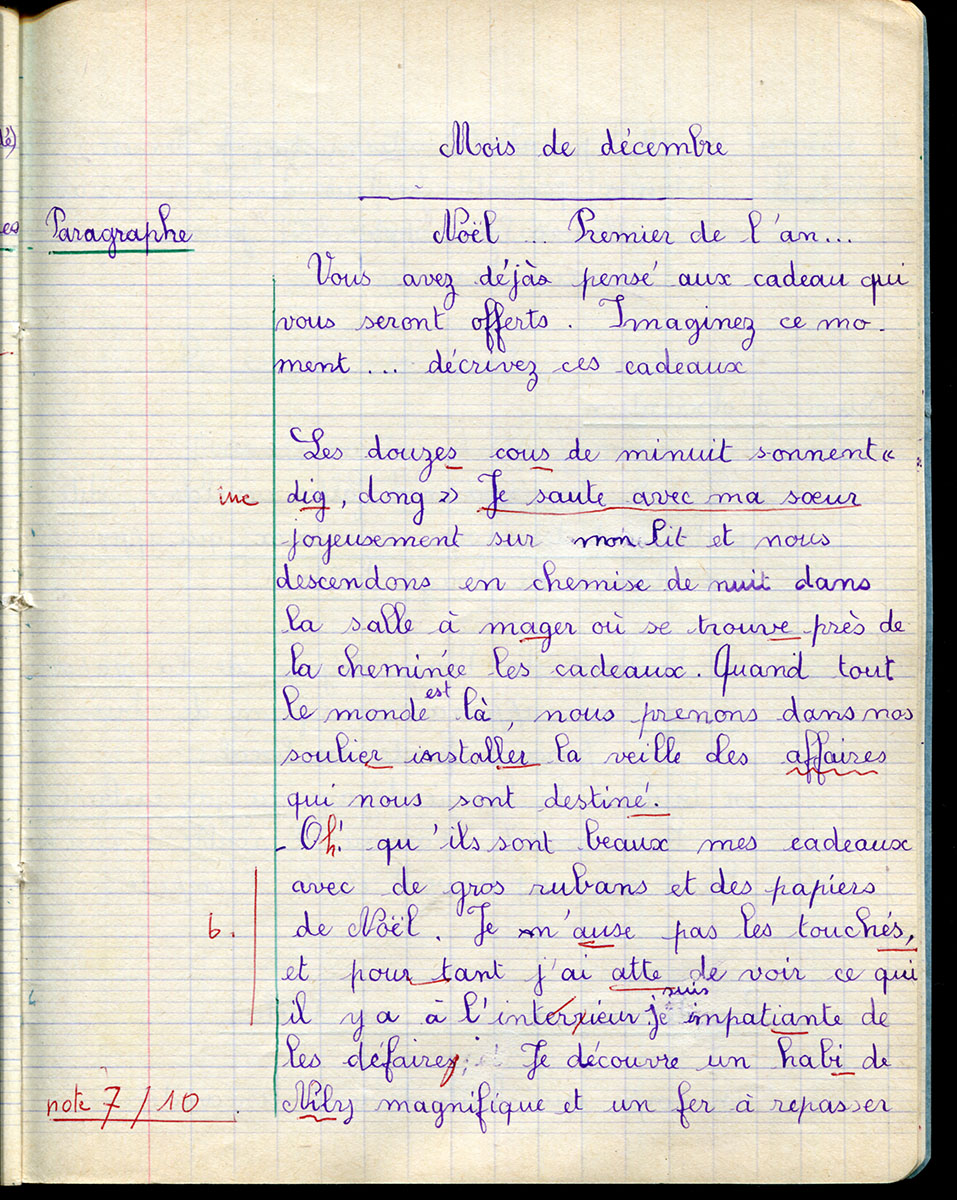 Mois de décembre
Paragraphe
Noël ... Premier de l'an...
Vous avez déjàs pensé aux cadeau qui
vous seront offerts. Imaginez ce mo-
ment... décrivez ces cadeaux
Les douzes cous de minuit sonnent «
inc
dig, dong » Je saute avec ma sœur
joyeusement sur mon lit et nous
descendons en chemise de nuit dans
la salle à mager où se trouve près de
la cheminée les cadeaux. Quand tout
le monde est là, nous prenons dans nos
soulier installer la veille des affaires
qui nous sont destiné.
- Oh! qu'ils sont beaux mes cadeaux
avec de gros rubans et des papiers
b.
de Noël. Je n'ause pas les touchés,
et pour tant j'ai atte de voir ce qui
il y a à l'interrieur je suis impatiante de
les défairez; Je découvre un habi de
note 7/10
magnifique et un fer à repasser